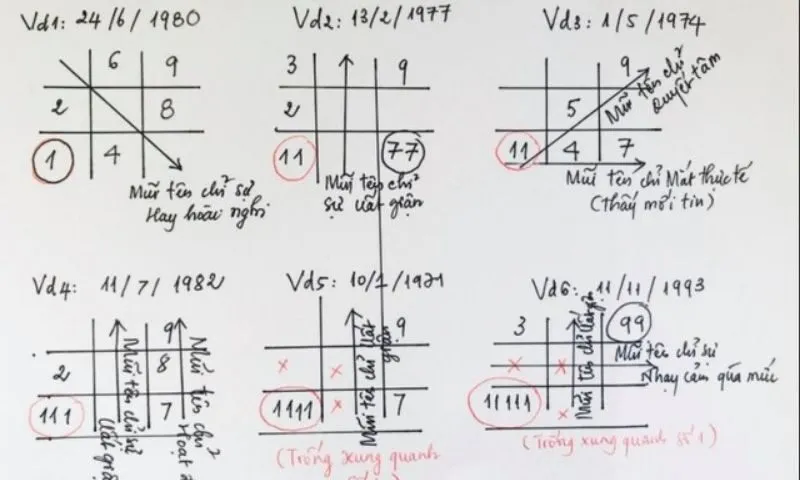 Vd1: 24/6/1980
6 9
2 8
1 4
Mũi tên chỉ sự
Hay hoài nghi
Vd2: 13/2/1977
3 9
2
11 77
Mũi tên chỉ
sự uất giận
Vd3: 1/5/1974
9
5
11 4 7
Mũi tên chỉ
quyết tâm
Mũi tên chỉ Mát thực tế
(thấy mới tin)
Vd4: 11/7/1982
9
2 8
111 7
Mũi tên chỉ sự
uất giận
Mũi tên chỉ
Hoạt
Vd5: 10/1/1971
9
x x
1111 x 7
Mũi tên chỉ uất
giận
(Trống xung quanh
Vd6: 11/11/1993
3 99
x x
11111 x
Mũi tên chỉ uất giận
Mũi tên chỉ sự
Nhạy cảm quá mức
(Trống xung quanh số 1)